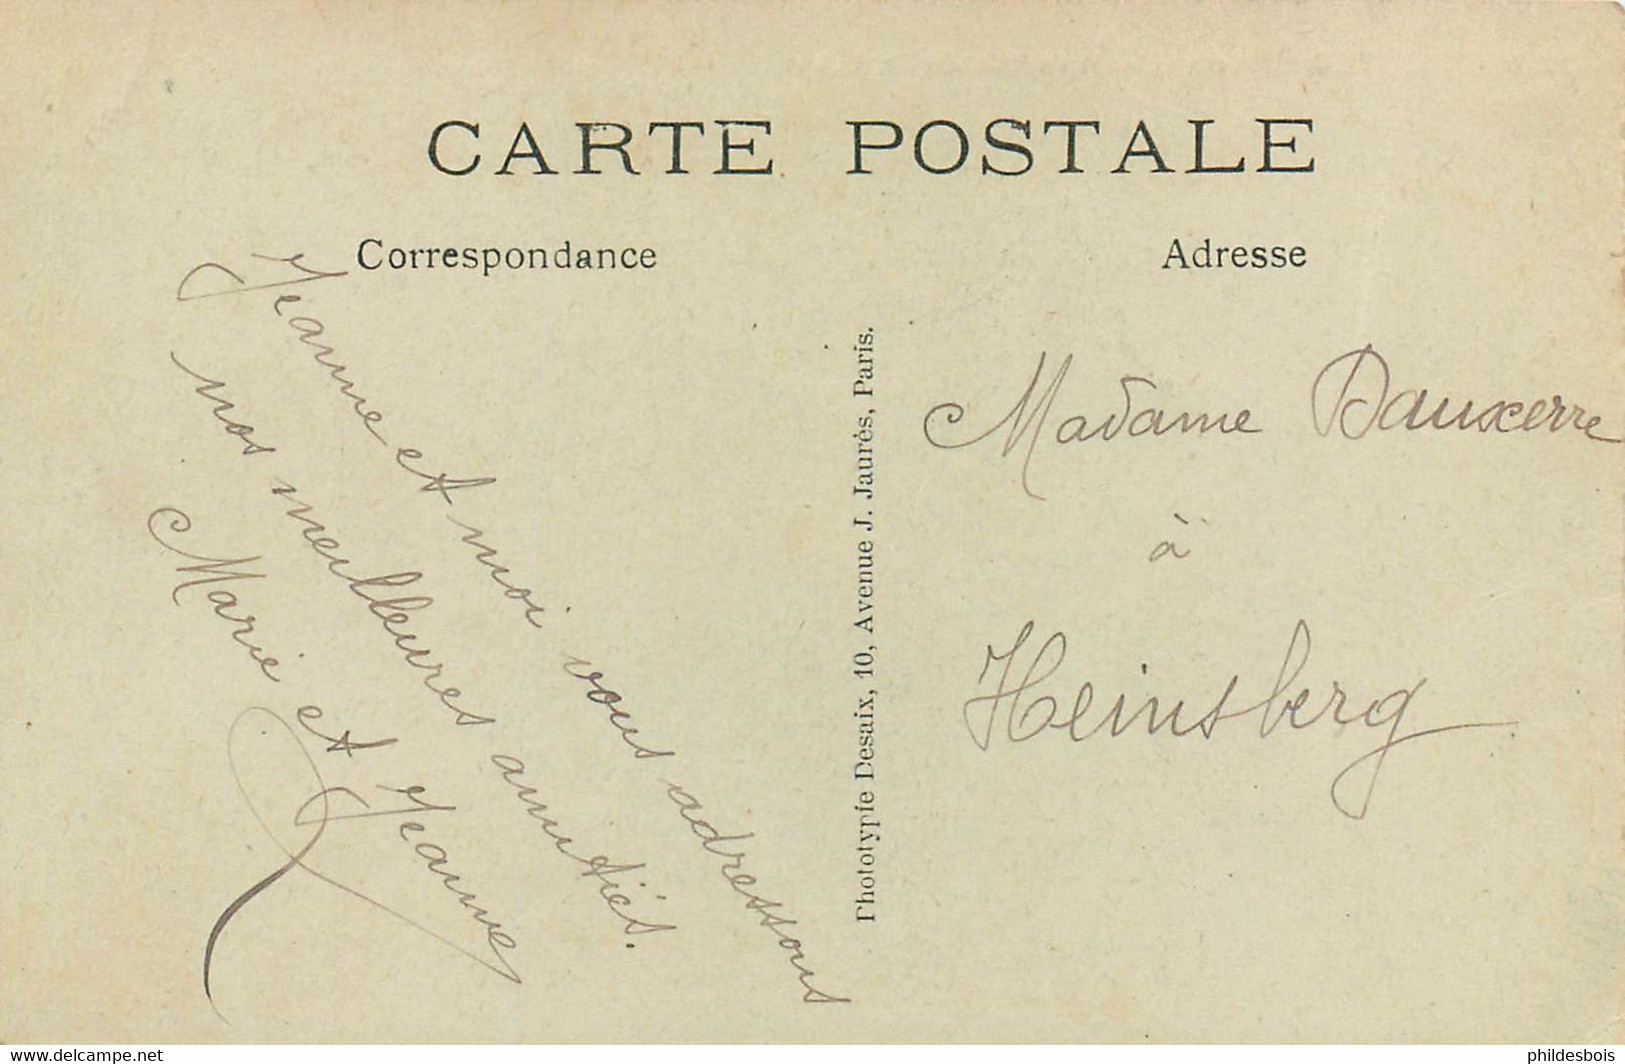 CARTE POSTALE
Correspondance
Jeanne et moi vous adressons
nos meilleures amitiés.
Marie et Jeanne
Phototypie Desaix, 10, Avenue J. Jaurès, Paris.
Adresse
Madame Bauxerre
à
Heinsberg
www.delcampe.net
phildesbois